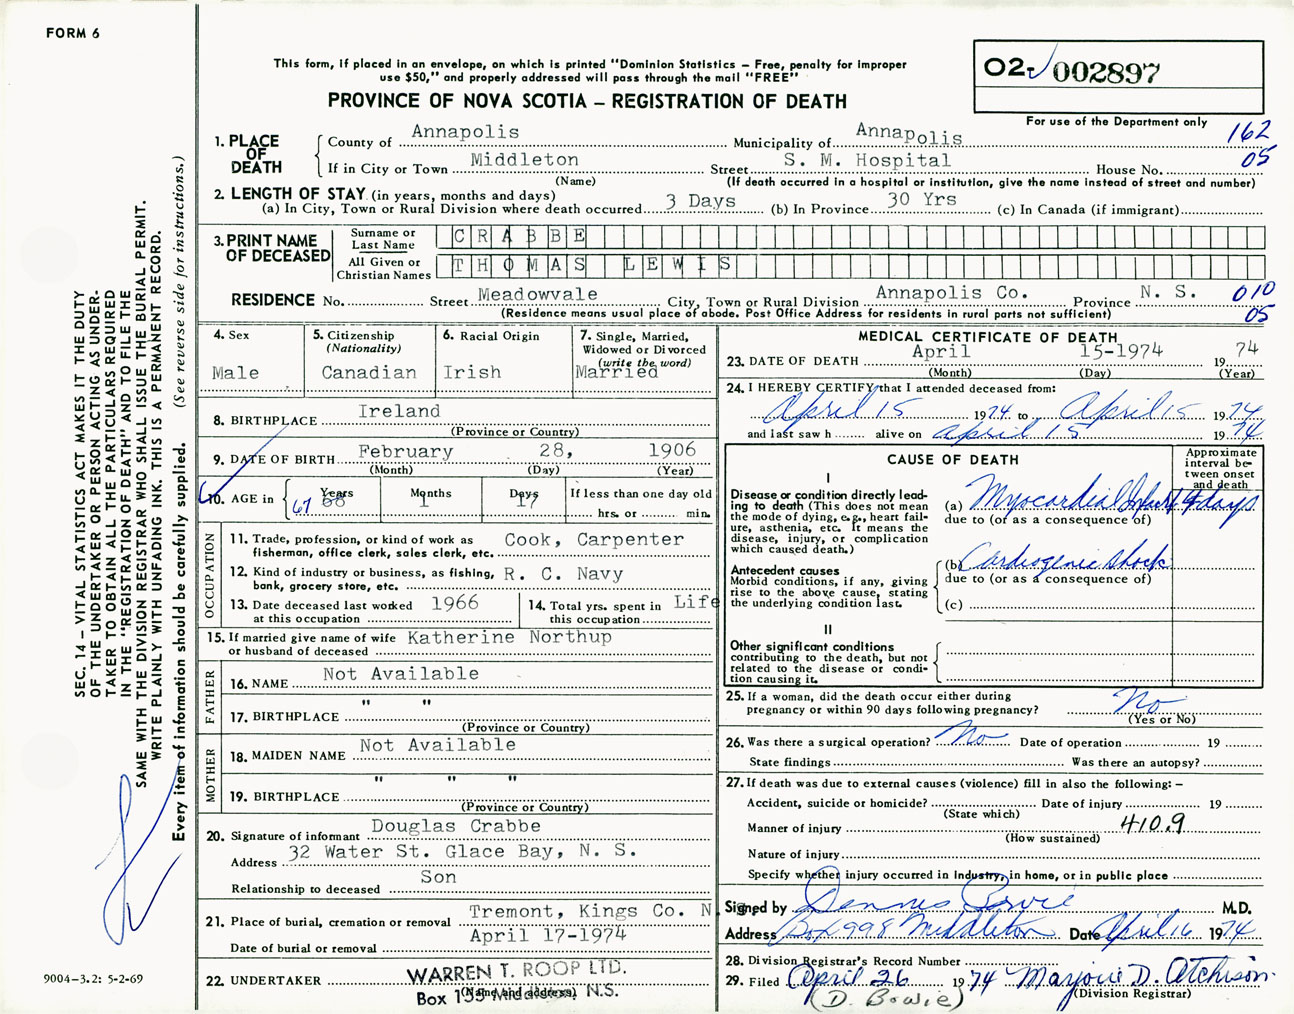 FORM 6
This form, if placed in an envelope, on which is printed "Dominion Statistics – Free, penalty for improper
use $50," and properly addressed will pass through the mail "FREE"
PROVINCE OF NOVA SCOTIA – REGISTRATION OF DEATH
02- 002897
For use of the Department only
162
05
1. PLACE OF DEATH
County of Annapolis Municipality of Annapolis
If in City or Town Middleton Street S. M. Hospital House No.
(Name) (If death occurred in a hospital or institution, give the name instead of street and number)
2. LENGTH OF STAY (in years, months and days)
(a) In City, Town or Rural Division where death occurred 3 Days (b) In Province 30 Yrs (c) In Canada (if immigrant)
3. PRINT NAME OF DECEASED
Surname or Last Name CRABBE
All Given or Christian Names THOMAS LEWIS
RESIDENCE No. Street Meadowvale City, Town or Rural Division Annapolis Co. Province N. S. 010
(Residence means usual place of abode. Post Office Address for residents in rural parts not sufficient) 05
4. Sex
Male
5. Citizenship
(Nationality)
Canadian
6. Racial Origin
Irish
7. Single, Married,
Widowed or Divorced
(write the word)
Married
8. BIRTHPLACE Ireland
(Province or Country)
9. DATE OF BIRTH February 28, 1906
(Month) (Day) (Year)
10. AGE in
Years
67 68
Months
1
Days
17
If less than one day old
hrs. or min.
OCCUPATION
11. Trade, profession, or kind of work as Cook, Carpenter
fisherman, office clerk, sales clerk, etc.
12. Kind of industry or business, as fishing, R. C. Navy
bank, grocery store, etc.
13. Date deceased last worked 1966
at this occupation
14. Total yrs. spent in Life
this occupation
15. If married give name of wife Katherine Northup
or husband of deceased
FATHER
16. NAME Not Available
17. BIRTHPLACE " "
(Province or Country)
MOTHER
18. MAIDEN NAME Not Available
19. BIRTHPLACE " " "
(Province or Country)
20. Signature of informant Douglas Crabbe
Address 32 Water St. Glace Bay, N. S.
Relationship to deceased Son
21. Place of burial, cremation or removal Tremont, Kings Co. N.
Date of burial or removal April 17-1974
22. UNDERTAKER WARREN T. ROOP LTD.
(Name and address)
Box 135 Middleton, N.S.
MEDICAL CERTIFICATE OF DEATH
23. DATE OF DEATH April 15-1974 19 74
(Month) (Day) (Year)
24. I HEREBY CERTIFY that I attended deceased from:
April 15 1974 to April 15 1974
and last saw h alive on April 15 1974
CAUSE OF DEATH
Approximate
interval be-
tween onset
and death
I
Disease or condition directly lead-
ing to death (This does not mean
the mode of dying, e.g., heart fail-
ure, asthenia, etc. It means the
disease, injury, or complication
which caused death.)
(a) Myocardial Infarct 4 days
due to (or as a consequence of)
Antecedent causes
Morbid conditions, if any, giving
rise to the above cause, stating
the underlying condition last.
(b) Cardiogenic shock
due to (or as a consequence of)
(c)
II
Other significant conditions
contributing to the death, but not
related to the disease or condi-
tion causing it.
25. If a woman, did the death occur either during
pregnancy or within 90 days following pregnancy? No
(Yes or No)
26. Was there a surgical operation? No Date of operation 19
State findings Was there an autopsy?
27. If death was due to external causes (violence) fill in also the following: –
Accident, suicide or homicide? Date of injury 19
(State which)
Manner of injury 410.9
(How sustained)
Nature of injury
Specify whether injury occurred in Industry, in home, or in public place
Signed by Dennis Bowie M.D.
Address Box 998 Middleton Date April 16 1974
28. Division Registrar's Record Number
29. Filed April 26 1974 Marjorie D. Atchison
(D. Bowie) (Division Registrar)
SEC. 14 – VITAL STATISTICS ACT MAKES IT THE DUTY
OF THE UNDERTAKER OR PERSON ACTING AS UNDER-
TAKER TO OBTAIN ALL THE PARTICULARS REQUIRED
IN THE "REGISTRATION OF DEATH" AND TO FILE THE
SAME WITH THE DIVISION REGISTRAR WHO SHALL ISSUE THE BURIAL PERMIT.
WRITE PLAINLY WITH UNFADING INK. THIS IS A PERMANENT RECORD.
Every item of information should be carefully supplied. (See reverse side for instructions.)
9004–3.2: 5-2-69